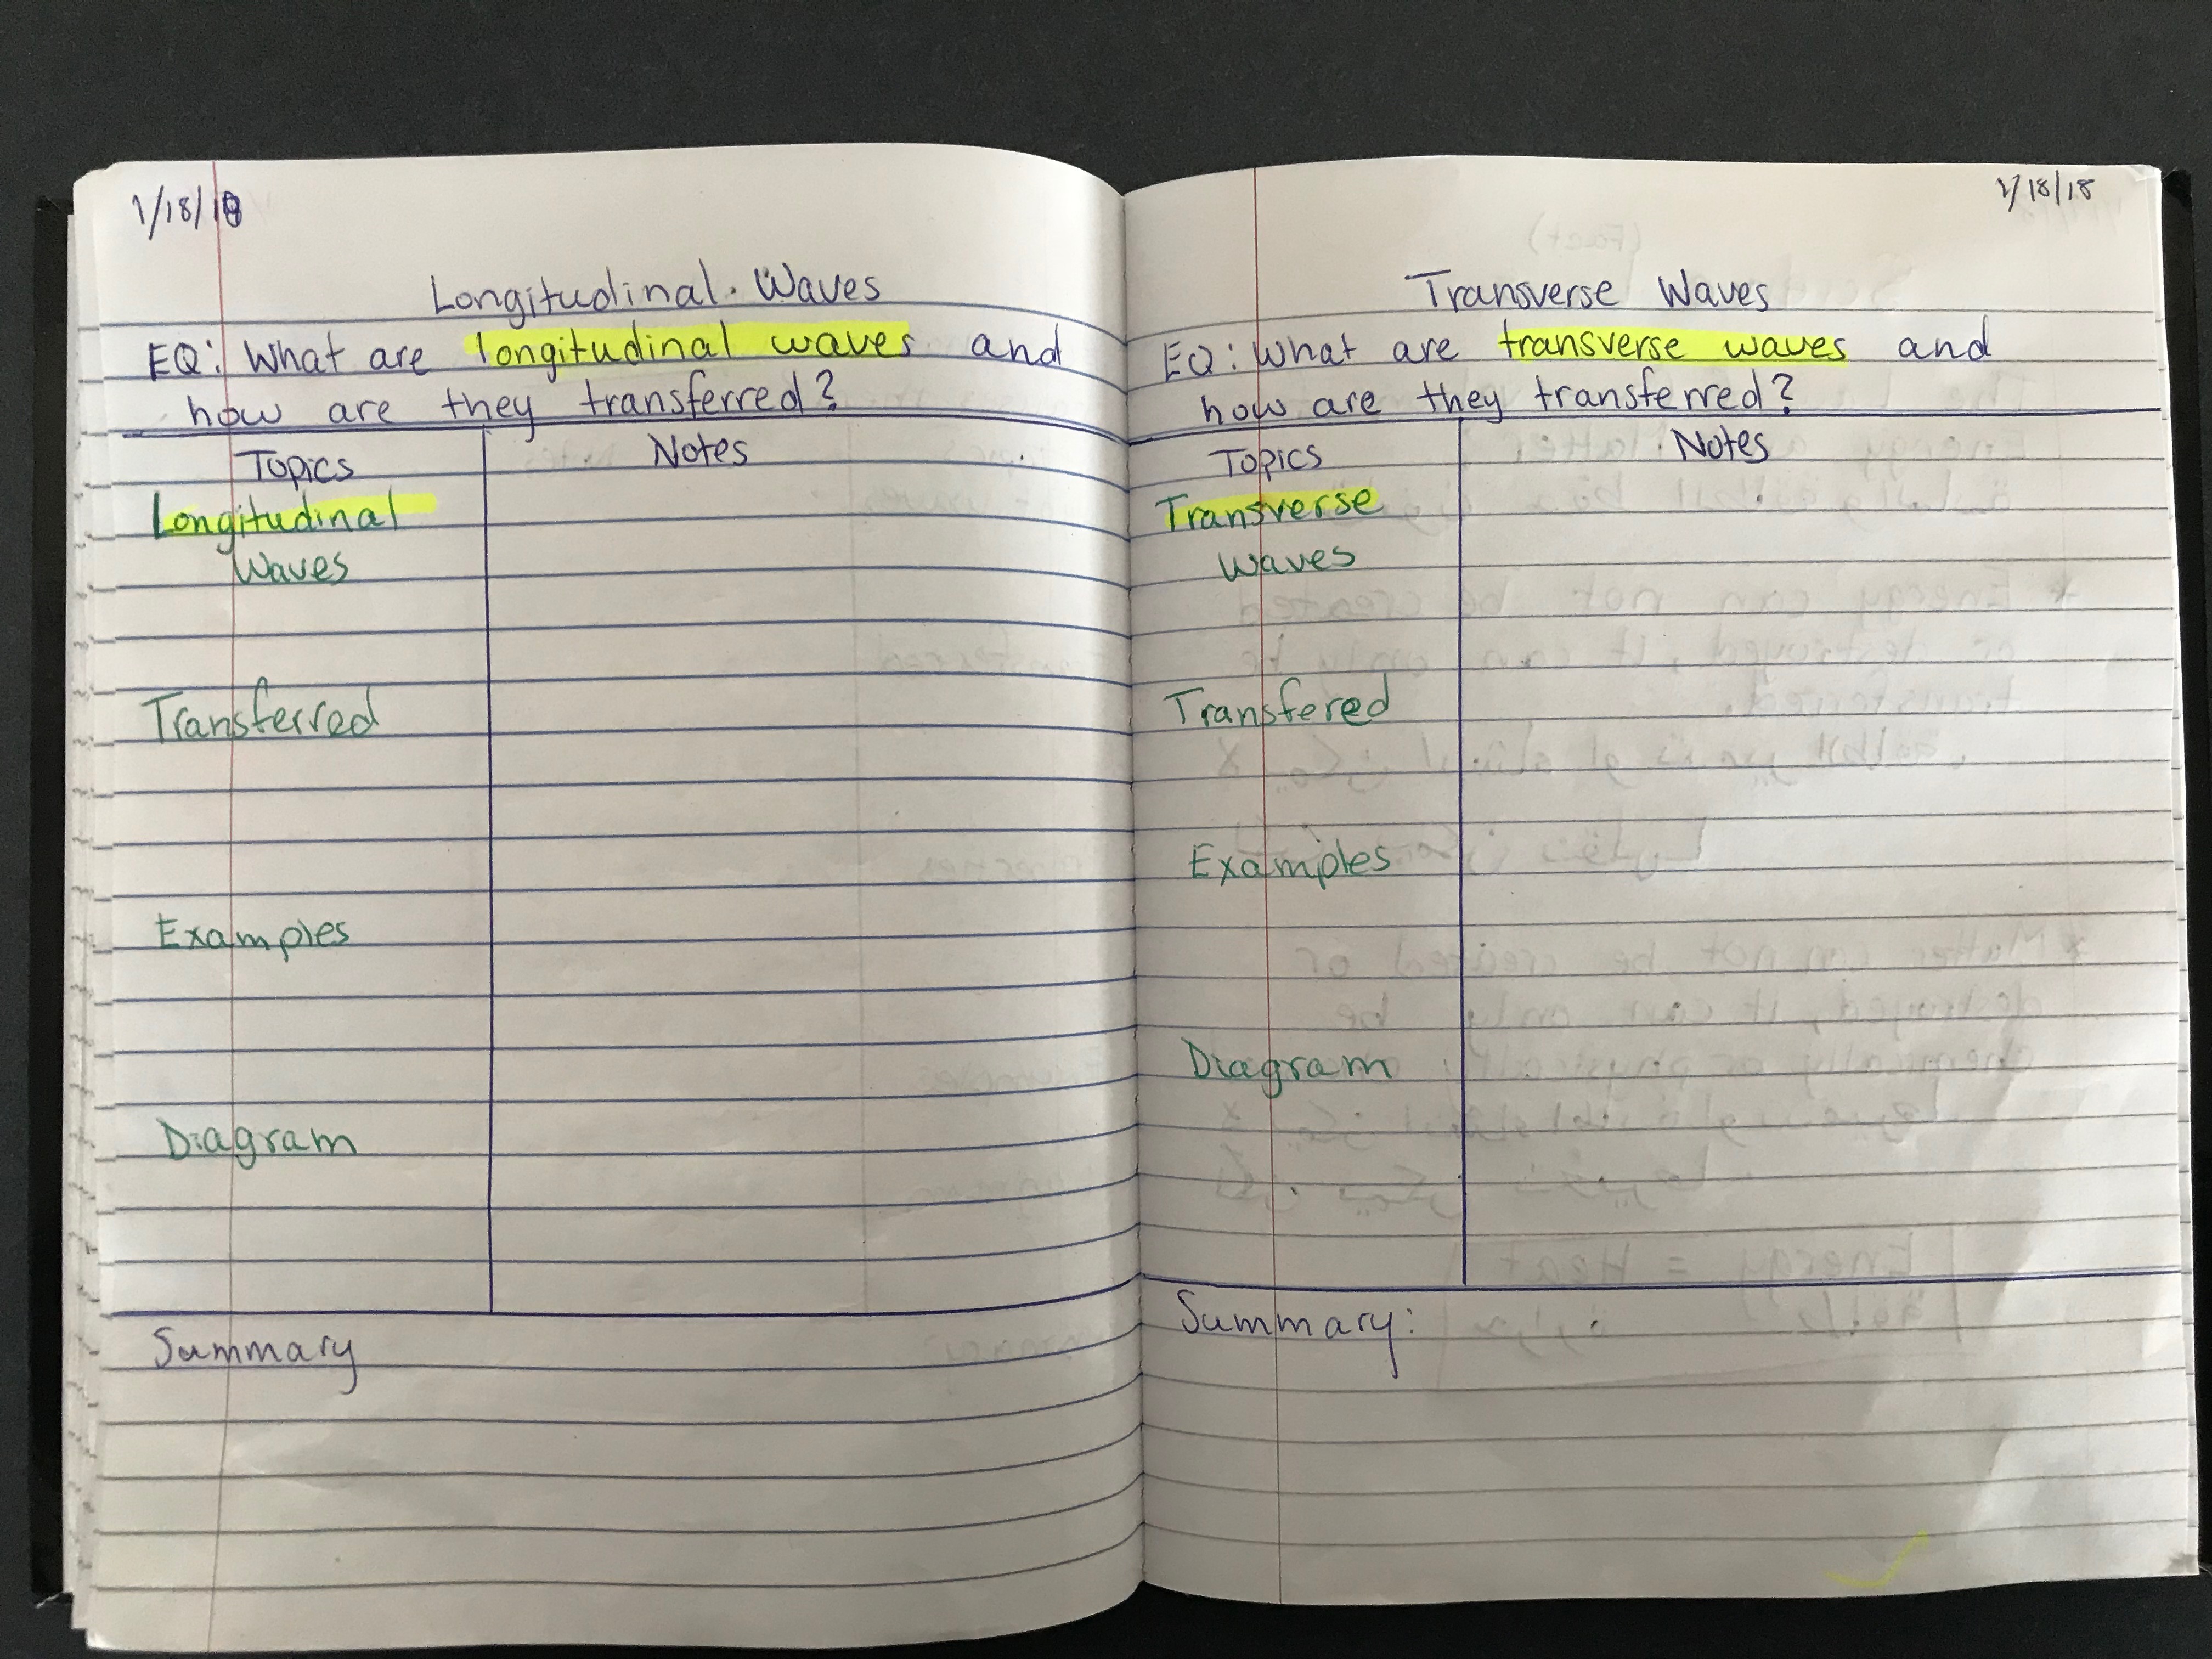 1/18/18
Longitudinal Waves
EQ: What are longitudinal waves and
how are they transferred?
Topics Notes
Longitudinal
Waves
Transferred
Examples
Diagram
Summary
1/18/18
Transverse Waves
EQ: What are transverse waves and
how are they transferred?
Topics Notes
Transverse
waves
Transfered
Examples
Diagram
Summary: